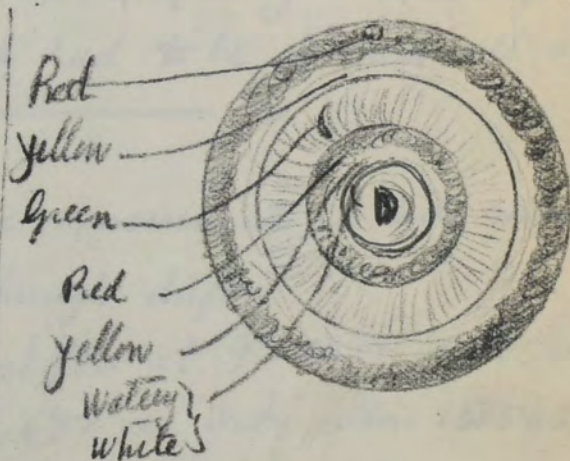 Red
Yellow
Green
Red
Yellow
Watery }
White }